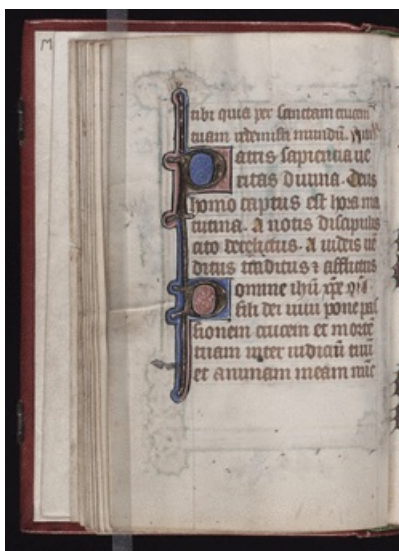 M
tibi quia per sanctam crucem
tuam redemisti mundū.
Patris sapientia ve
ritas divina. deus
homo captus est hora ma
tutina. A notis discipulis
cito derelictus. A iudeis vē
ditus traditus ⁊ afflictus
Domine ihū xpe
fili dei vivi pone pas
sionem crucem et mortē
tuam inter iudiciū tuū
et animam meam nūc